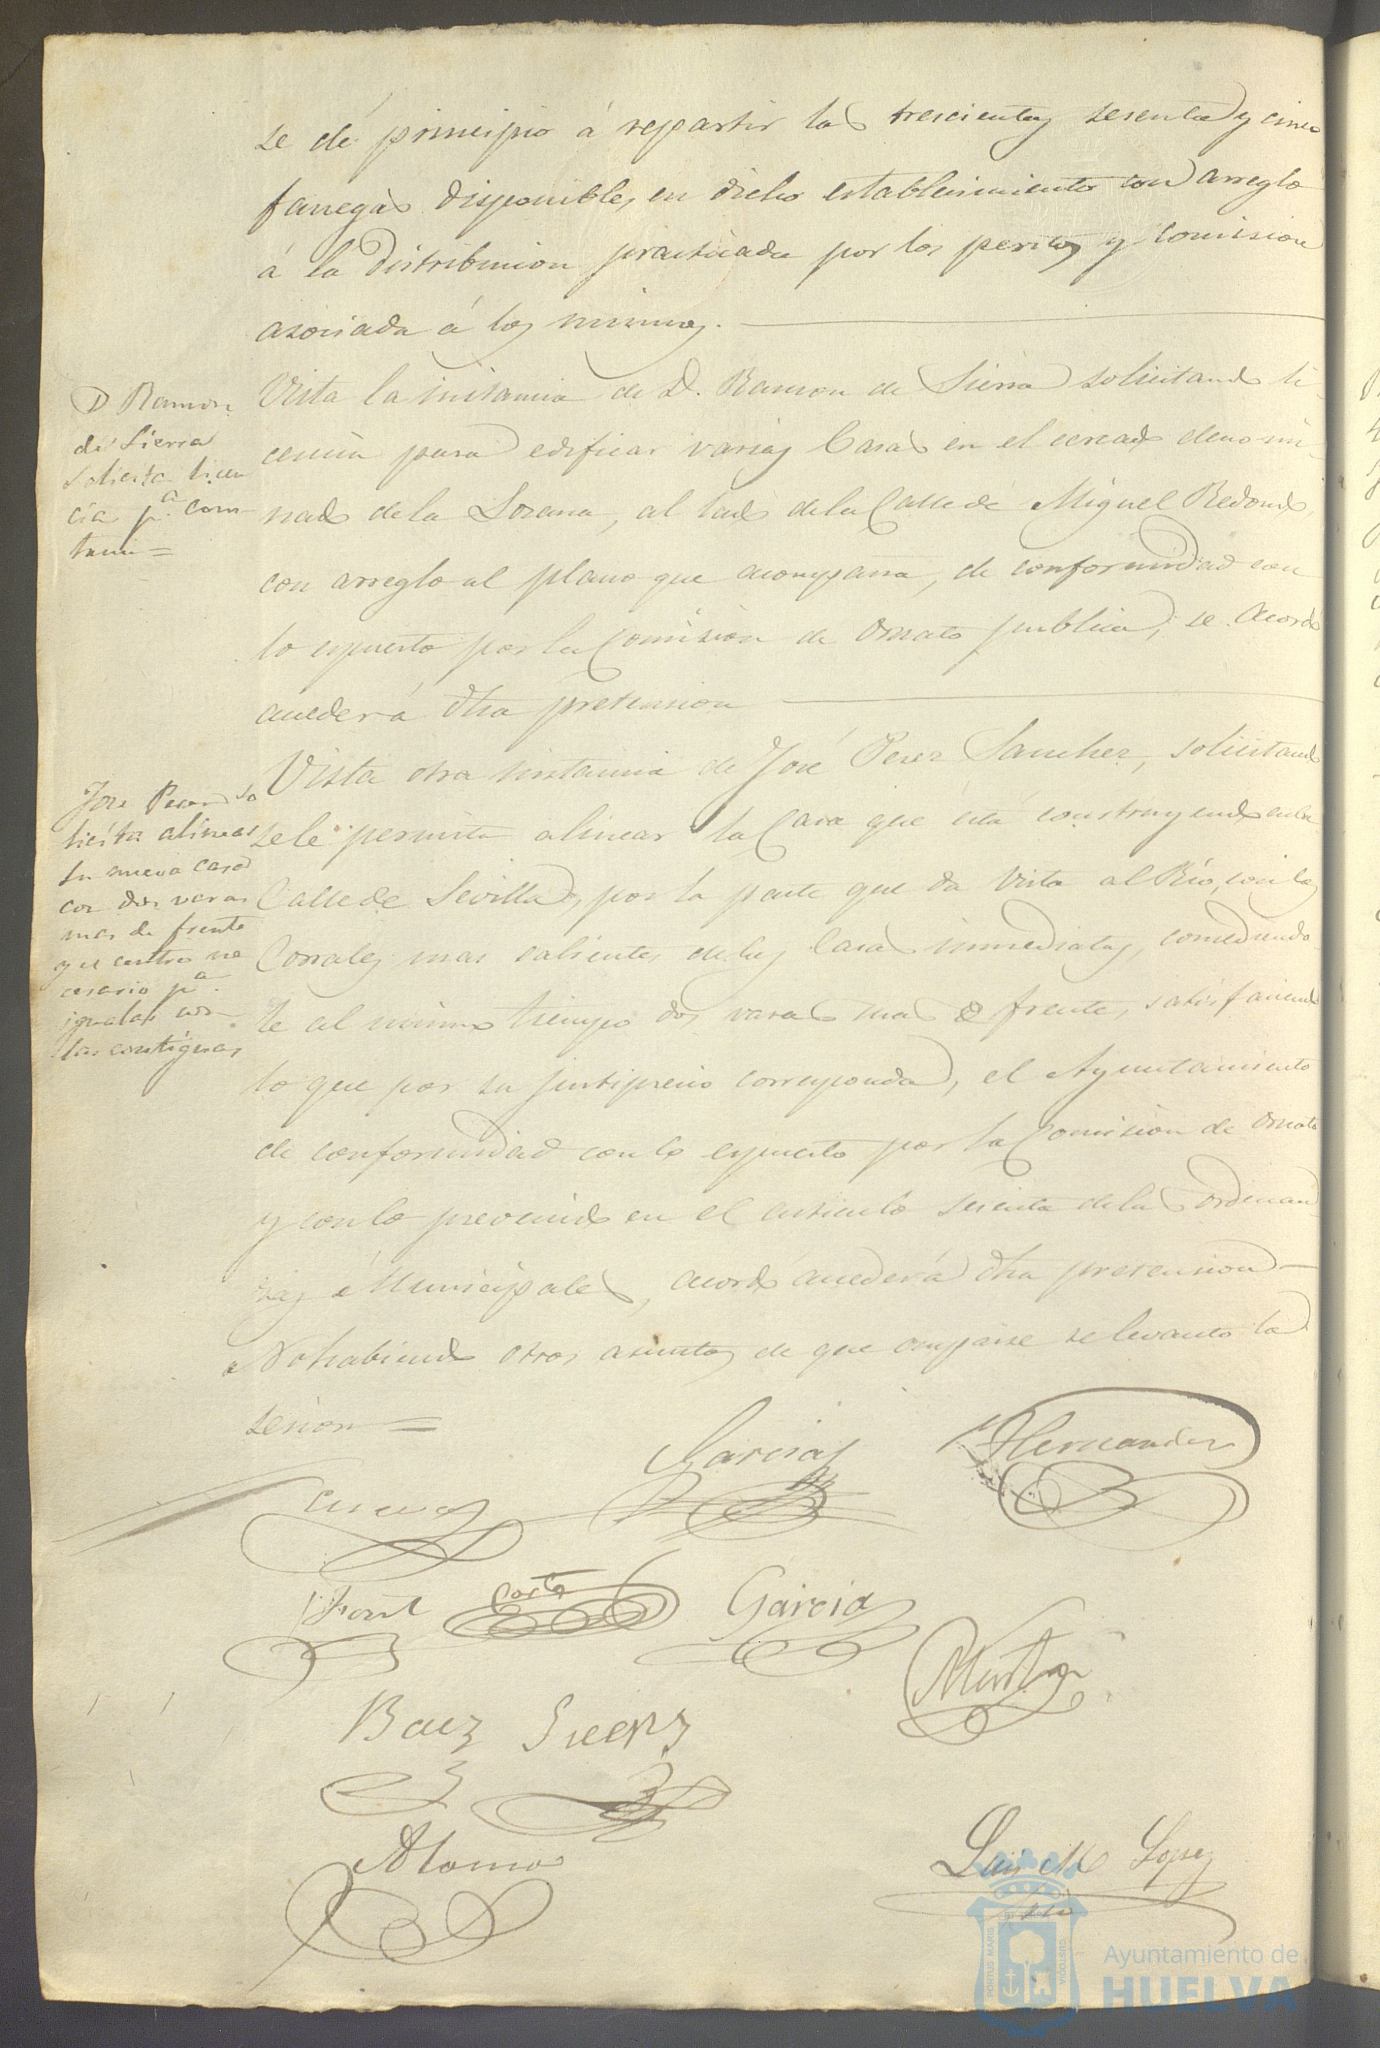 se dé principio á repartir las trescientas sesenta y cinco
fanegas disponibles en dicho establecimiento con arreglo
á la distribucion practicada por los peritos y comision
asociada á los mismos.
D Ramon
de Sierra
solicita licen
cia pª. cons
Vista la instancia de D. Ramon de Sierra solicitando li
cencia para edificar varias Casas en el cercado denomi
nado de la Lozana, al lado de la Calle de Miguel Redondo,
con arreglo al plano que acompaña, de conformidad con
lo espuesto por la Comision de Ornato publico, se acordó
acceder á dha pretension
Jose Perez so
licita alinear
su nueva casa
con dos varas
mas de frente
y el centro ne
cesario pª.
igualar con
las contiguas
Vista otra instancia de José Perez Sanchez, solicitando
se le permita alinear la Casa que está construyendo en la
Calle de Sevilla, por la parte que da vista al Rio, con los
Corrales mas salientes de las Casas inmediatas, concediendo
le al mismo tiempo dos varas mas de frente, satisfaciendo
lo que por su justiprecio corresponda, el Ayuntamiento
de conformidad con lo espuesto por la Comision de Ornato
y con lo prevenido en el articulo sesenta de las Ordenan
zas Municipales, acordó acceder á dha pretension
No habiendo otros asuntos de que ocuparse se levantó la
sesion
Garcia Hernandez
Cuevas
Font Costa Garcia
Baez
Alonso
Luis M Lopez
Srio
PORTUS MARIS
CUSTODIA
Ayuntamiento de
HUELVA